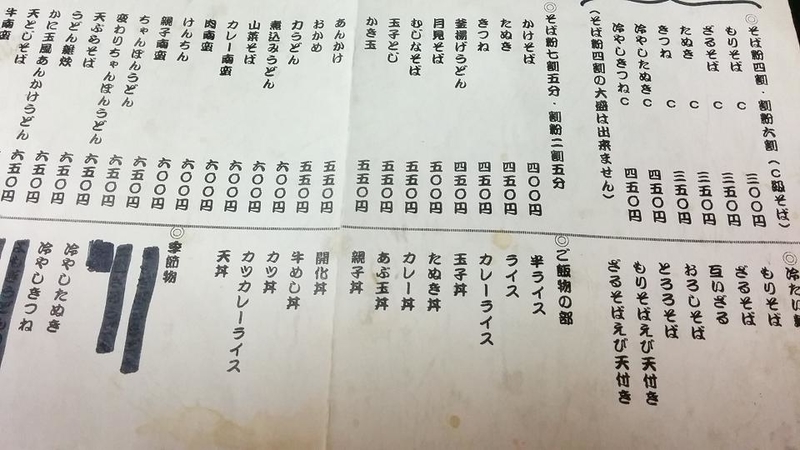 ◎そば粉四割・割粉六割(C級そば)
もりそば C 三〇〇円
ざるそば C 三五〇円
たぬき C 三五〇円
きつね C 三五〇円
冷やしたぬきC 四五〇円
冷やしきつねC 四五〇円
(そば粉四割の大盛は出来ません)
◎そば粉七割五分・割粉二割五分
かけそば 四〇〇円
たぬき 四五〇円
きつね 四五〇円
釜揚げうどん 四五〇円
月見そば 五〇〇円
むじなそば 五五〇円
玉子とじ 五五〇円
かき玉 五五〇円
あんかけ 五五〇円
おかめ 五五〇円
力うどん 六〇〇円
煮込みうどん 六〇〇円
山菜そば 六〇〇円
カレー南蛮 六〇〇円
肉南蛮 六〇〇円
けんちん 六〇〇円
親子南蛮 六〇〇円
ちゃんぽんうどん 六〇〇円
変わりちゃんぽんうどん 六五〇円
天ぷらそば 六五〇円
うどん雑炊 六五〇円
かに玉風あんかけうどん 六五〇円
天とじそば 六五〇円
牛南蛮 六五〇円
◎冷たい
もりそば
ざるそば
互いざる
おろしそば
とろろそば
もりそばえび天付き
ざるそばえび天付き
◎ご飯物の部
半ライス
ライス
カレーライス
玉子丼
たぬき丼
カレー丼
あぶ玉丼
親子丼
開化丼
牛めし丼
カツ丼
カツカレーライス
天丼
◎季節物
冷やしたぬき
冷やしきつね